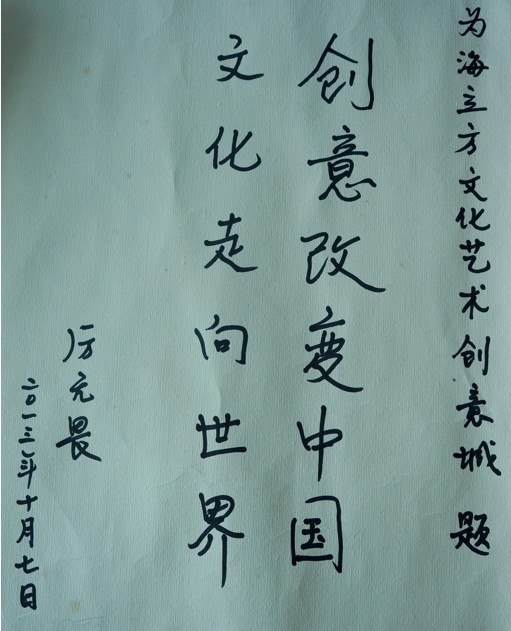 为海立方文化艺术创意城 题
创意改变中国
文化走向世界
厉无畏
二〇一三年十月七日